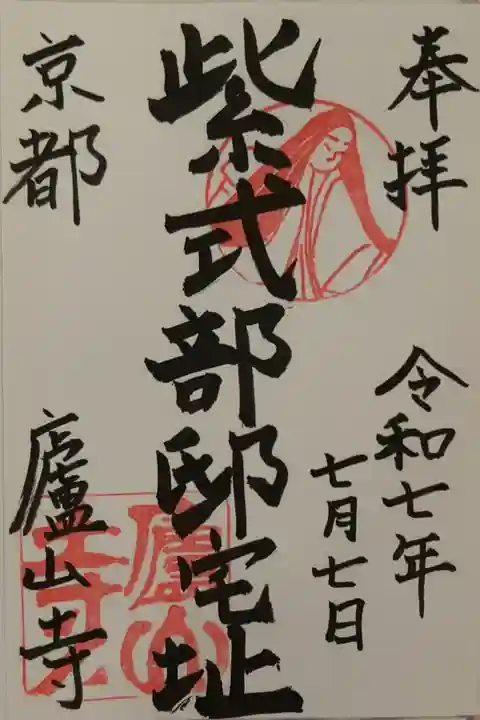 奉拝
令和七年
七月七日
紫式部邸宅址
京都
廬山寺
廬山
寺印